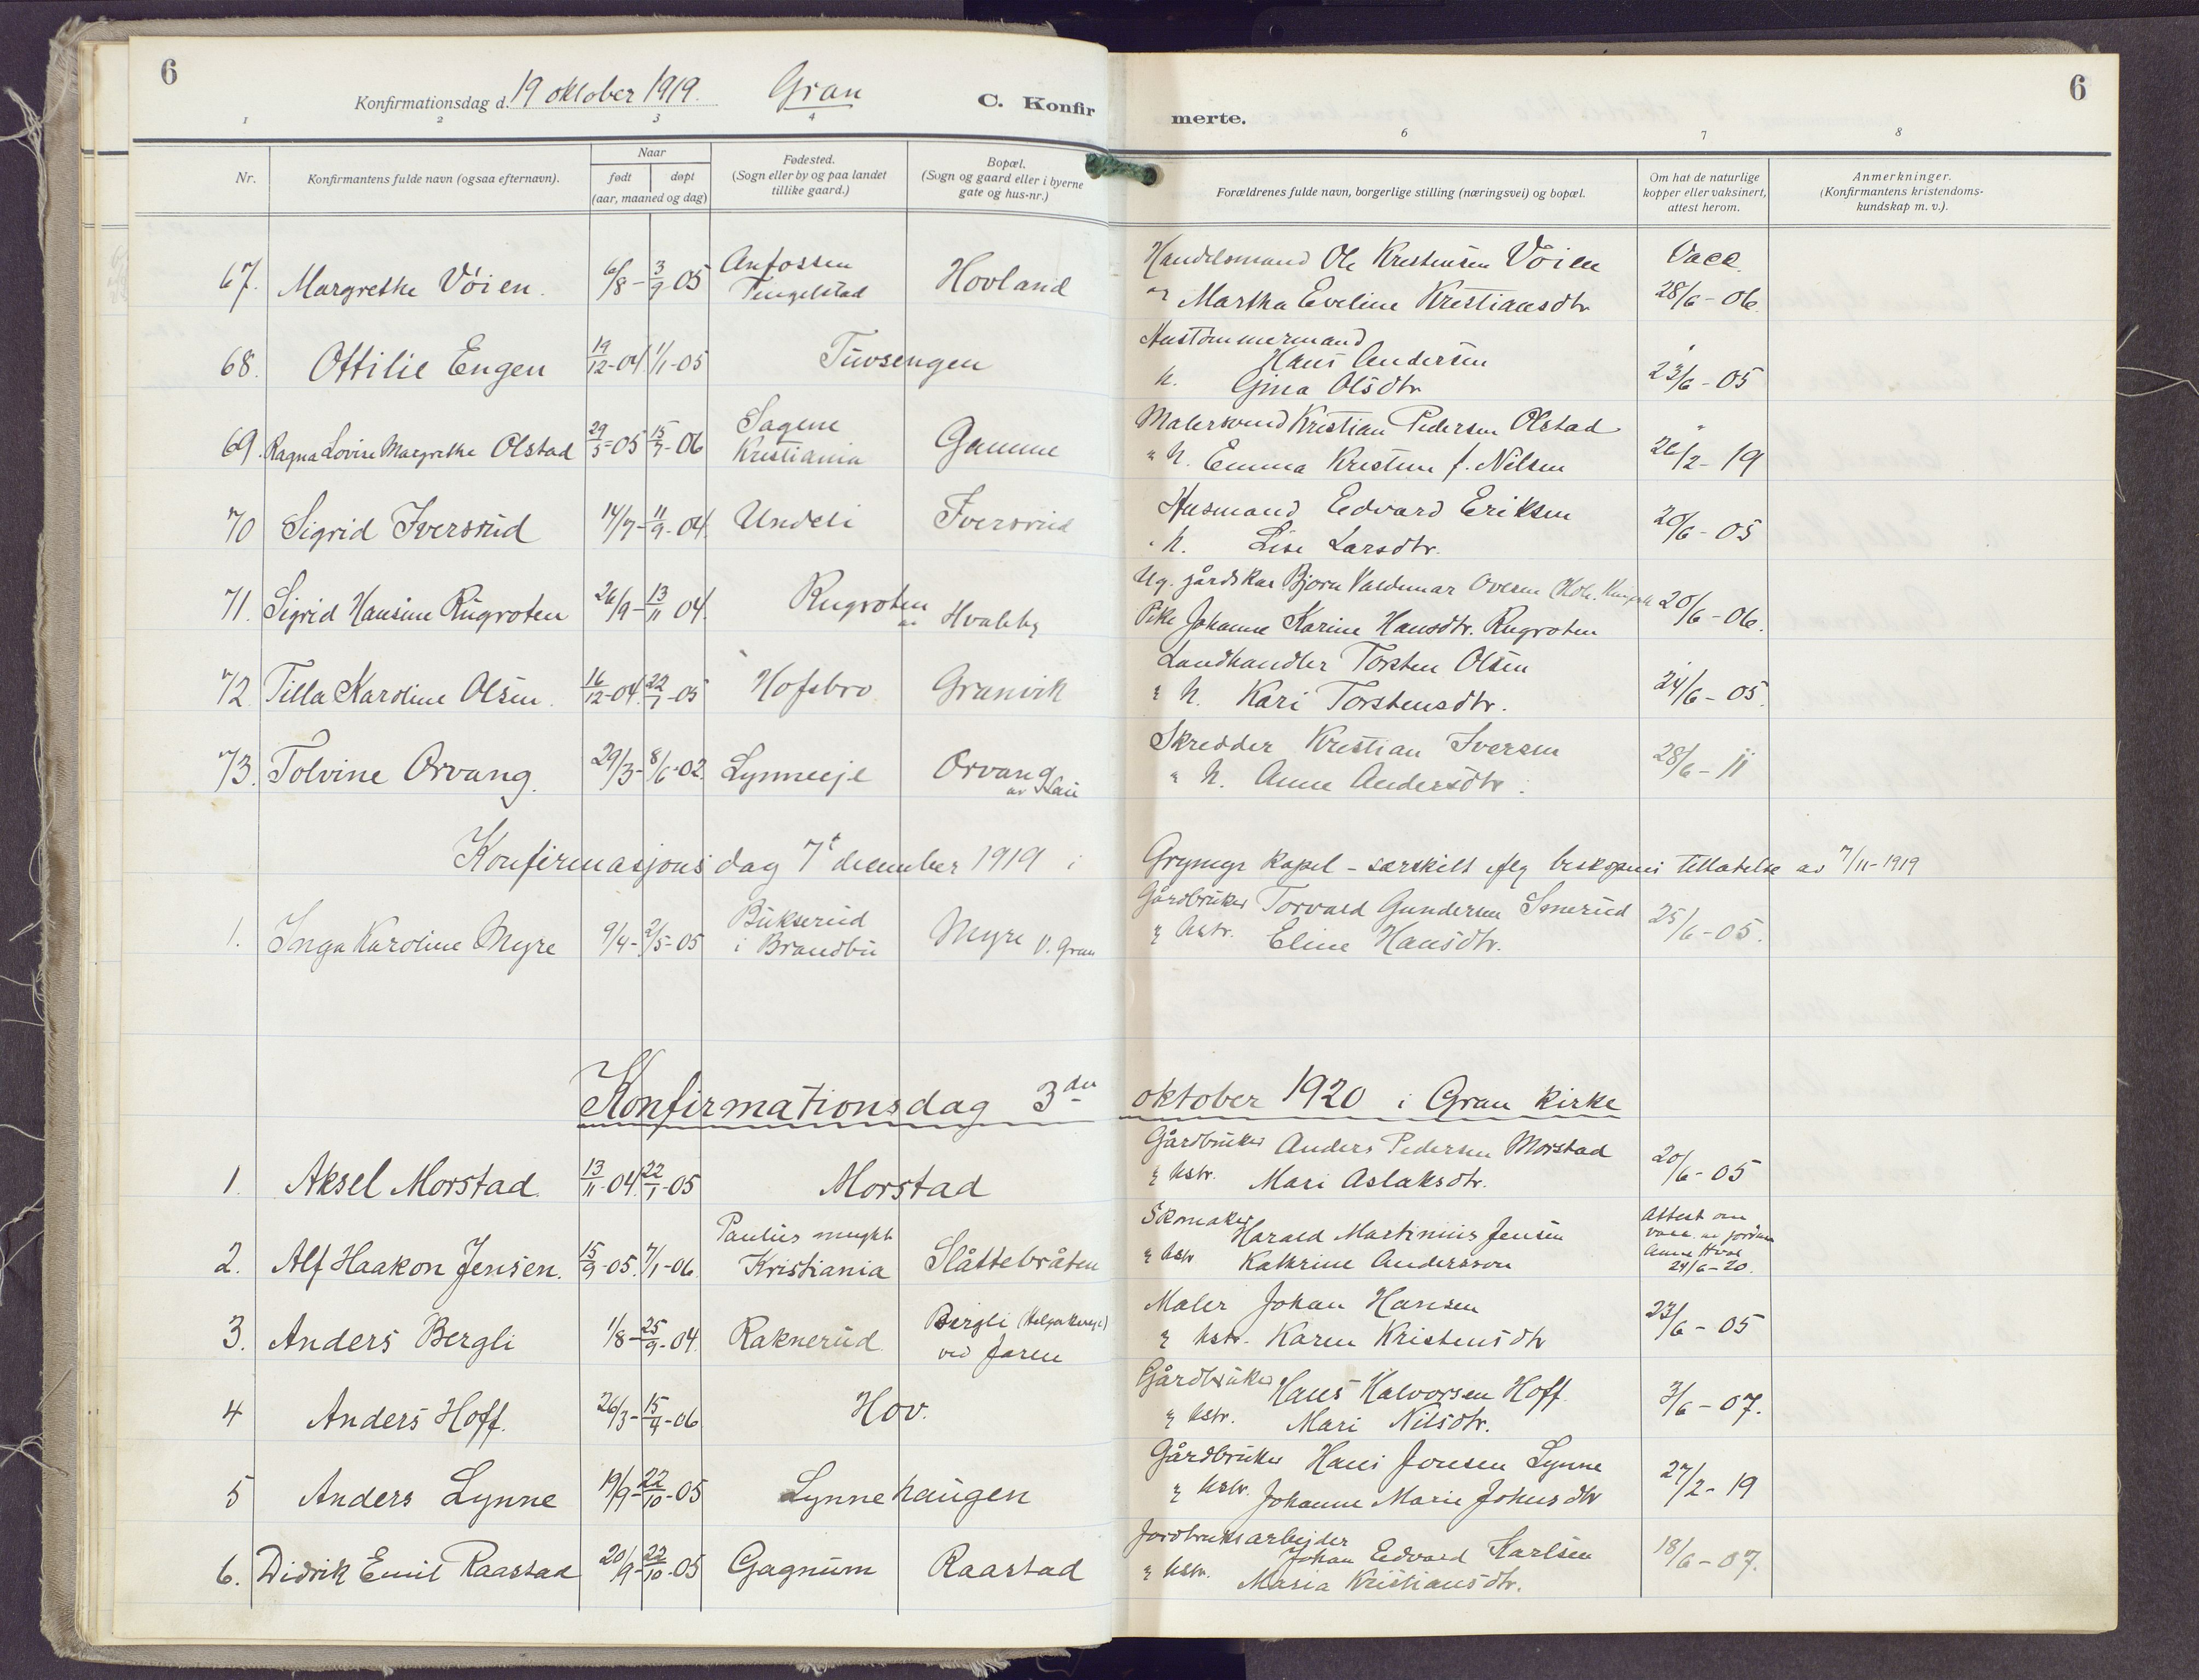 6
Konfirmationsdag d. 19 oktober 1919. Gran C. Konfirmerte. 6
1 2 3 4 6 7 8
Nr.
Konfirmantens fulde navn (ogsaa efternavn).
Naar
født
døpt
(aar, maaned og dag)
Fødested.
(Sogn eller by og paa landet
tillike gaard.)
Bopæl.
(Sogn og gaard eller i byerne
gate og hus-nr.)
Forældrenes fulde navn, borgerlige stilling (næringsvei) og bopæl.
Om hat de naturlige
kopper eller vaksinert,
attest herom.
Anmerkninger.
(Konfirmantens kristendoms-
kundskap m. v.).
67. Margrethe Vøien. 6/8 - 3/9 05 Tingelstad Hovland
Handelsmand Ole Kristensen Vøien Vacc.
Martha Eveline Kristiansdtr 28/6 - 06.
68. Ottilie Engen 19/12-04. 1/1-05 Tuvsengen
Hustømmermand
Hans Andersen
h. Gina Olsdtr 23/6 - 05
69. Ragna Lovise Margrethe Olstad 29/5-05 15/7-06 Sagene Kristiania Gamme
Malersvend Kristian Pedersen Olstad "
" h. Emma Kristine f. Nilsen 26/2 - 19
70 Sigrid Iversrud 14/7 - 11/9 - 04. Undeli Iversrud
Husmand Edvard Eriksen
" h. Lise Larsdtr. 20/6 - 05
71. Sigrid Hansine Rugroten 26/9 - 13/11 04. Rugroten Hvaleby
Ug. gårdskar Bjørn Valdemar Ovesen
Pike Johanne Karine Hansdtr. Rugroten 20/6 - 06.
72 Tilla Karoline Olsen. 16/12-04. 22/1-05 Hofsbro Granvik
Landhandler Torsten Olsen
& h. Kari Torstensdtr. 24/6 - 05.
73. Tolvine Orvang. 29/3 - 8/6-02. Lynneeje Orvang
Skredder Kristian Iversen
" h. Anne Andersdtr. 28/6 - 11
Konfirmasjonsdag 7' december 1919 i Grymyr kapel - særskilt flg biskopens tillatelse av 7/11-1919
1. Inga Karoline Myre 9/4 - 2/5-05 Bukserud i Brandbu Myre V. Gran
Gårdbruker Torvald Gundersen Smerud
& hstr. Eline Hansdtr. 25/6-05.
Konfirmationsdag 3die oktober 1920 i Gran kirke
1. Aksel Morstad. 13/11-04. 22/1-05 Morstad
Gårdbruker Anders Pedersen Morstad
& hstr. Mari Aslaksdtr. 20/6 - 05
2. Alf Haakon Jensen. 15/9-05. 7/1-06. Paulus Kristiania Slåttebråten
Skomaker Harald Martinius Jensen
& hstr Kathrine Andersson
Attest om
vacc. av jordm
Anne Hval
24/6-20.
3. Anders Bergli 1/8 - 25/9-04. Raknerud Bergli ved Jaren
Maler Johan Hansen
& hstr. Karen Kristensdtr 23/6 - 05
4 Anders Hoff. 26/3 - 15/4-06 Hov.
Gårdbruker Hans Halvorsen Hoff
& hstr. Mari Nilsdtr. 3/6 - 07.
5 Anders Lynne 19/9 - 22/10-05 Lynnehaugen
Gårdbruker Hans Jonsen Lynne
& hstr. Johanne Marie Johnsdtr 27/2 - 19
6. Didrik Emil Raastad 20/9 - 22/10-05 Gagnum Raastad
Jordbruksarbeider
Johan Edvard Karlsen
& hstr. Maria Kristiansdtr. 18/6 - 07.